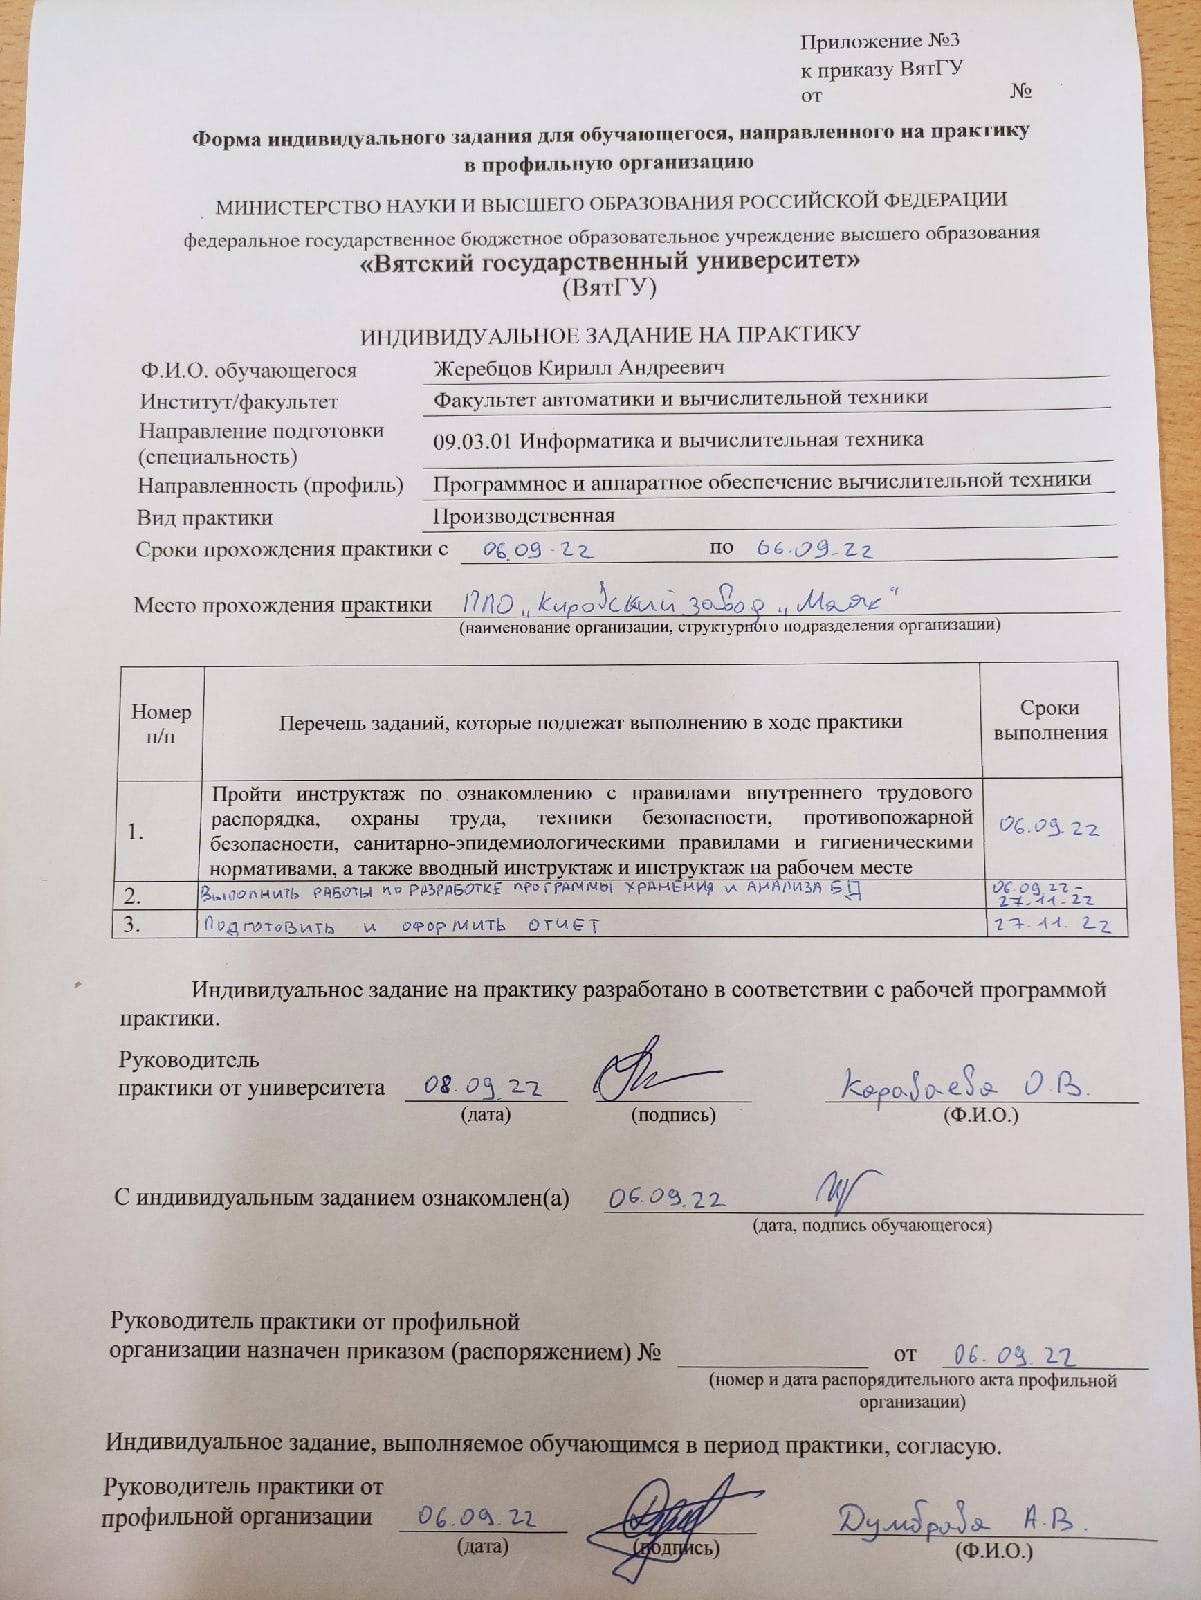 Приложение №3
к приказу ВятГУ
от №
Форма индивидуального задания для обучающегося, направленного на практику
в профильную организацию
МИНИСТЕРСТВО НАУКИ И ВЫСШЕГО ОБРАЗОВАНИЯ РОССИЙСКОЙ ФЕДЕРАЦИИ
федеральное государственное бюджетное образовательное учреждение высшего образования
«Вятский государственный университет»
(ВятГУ)
ИНДИВИДУАЛЬНОЕ ЗАДАНИЕ НА ПРАКТИКУ
Ф.И.О. обучающегося Жеребцов Кирилл Андреевич
Институт/факультет Факультет автоматики и вычислительной техники
Направление подготовки
(специальность) 09.03.01 Информатика и вычислительная техника
Направленность (профиль) Программное и аппаратное обеспечение вычислительной техники
Вид практики Производственная
Сроки прохождения практики с 06.09.22 по 06.09.22
Место прохождения практики ППО „Кировский завод „Маяк"
(наименование организации, структурного подразделения организации)
Номер
п/п
Перечень заданий, которые подлежат выполнению в ходе практики
Сроки
выполнения
1.
Пройти инструктаж по ознакомлению с правилами внутреннего трудового
распорядка, охраны труда, техники безопасности, противопожарной
безопасности, санитарно-эпидемиологическими правилами и гигиеническими
нормативами, а также вводный инструктаж и инструктаж на рабочем месте
06.09.22
2. Выполнить работы по разработке программы хранения и анализа БД
06.09.22-
27.11.22
3. Подготовить и оформить отчет 27.11.22
Индивидуальное задание на практику разработано в соответствии с рабочей программой
практики.
Руководитель
практики от университета 08.09.22 Караваева О.В.
(дата) (подпись) (Ф.И.О.)
С индивидуальным заданием ознакомлен(а) 06.09.22
(дата, подпись обучающегося)
Руководитель практики от профильной
организации назначен приказом (распоряжением) № от 06.09.22
(номер и дата распорядительного акта профильной
организации)
Индивидуальное задание, выполняемое обучающимся в период практики, согласую.
Руководитель практики от
профильной организации 06.09.22 Думброва А.В.
(дата) (подпись) (Ф.И.О.)